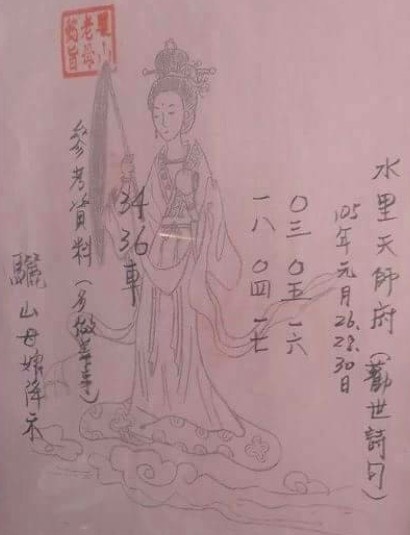 水里天師府(勸世詩句)
105年元月26.28.30日
〇三 〇五 一六
一八 〇四 一七
34
36車
參考資料(多做善事)
驪山母娘降示
驪山
老母